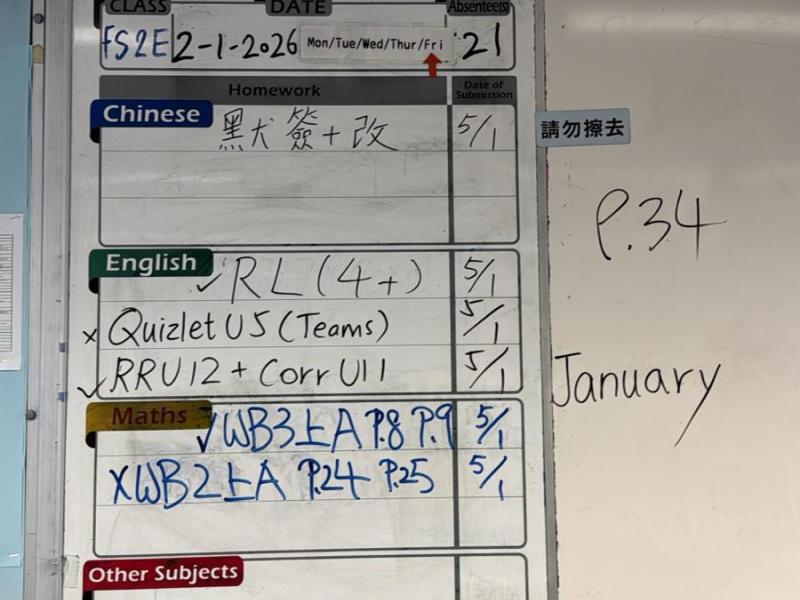 CLASS DATE Absentee(s)
FS2E 2-1-2026 Mon/Tue/Wed/Thur/Fri 21
Homework Date of Submission
Chinese 黑犬 簽+改 5/1
請勿擦去
P.34
English ✓RL (4+) 5/1
x Quizlet U5 (Teams) 5/1
✓RRU12 + Corr U11 5/1
January
Maths ✓WB3上A P.8 P.9 5/1
XWB2上A P.24 P.25 5/1
Other Subjects